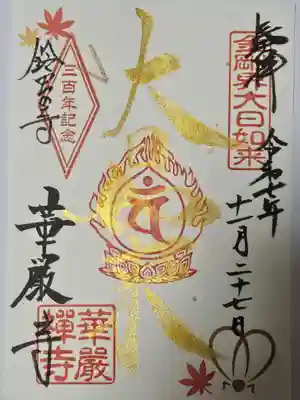 奉拝
令和七年
十一月二十七日
金剛界大日如来
大
三百年記念
鈴虫の寺
華厳寺
華嚴
禅寺